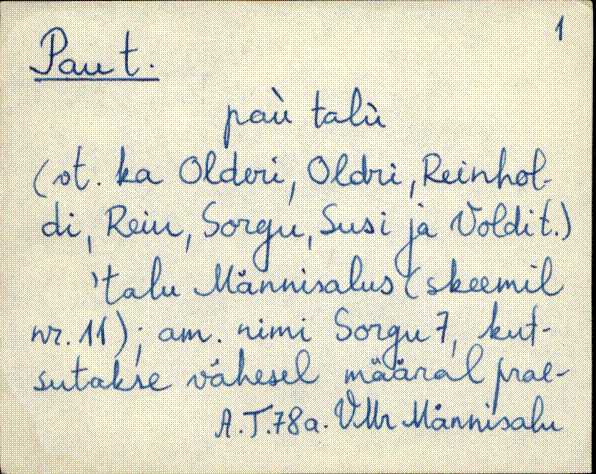 1
Pau t.
paù talù
(vt. ka Olderi, Oldri, Reinhol-
di, Reiu, Sorgu, Susi ja Voldi t.)
'talu Männisalus (skeemil
nr. 11); am. nimi Sorgu 7, kut-
sutakse vähesel määral prae-
A.T.78a. VMr Männisalu